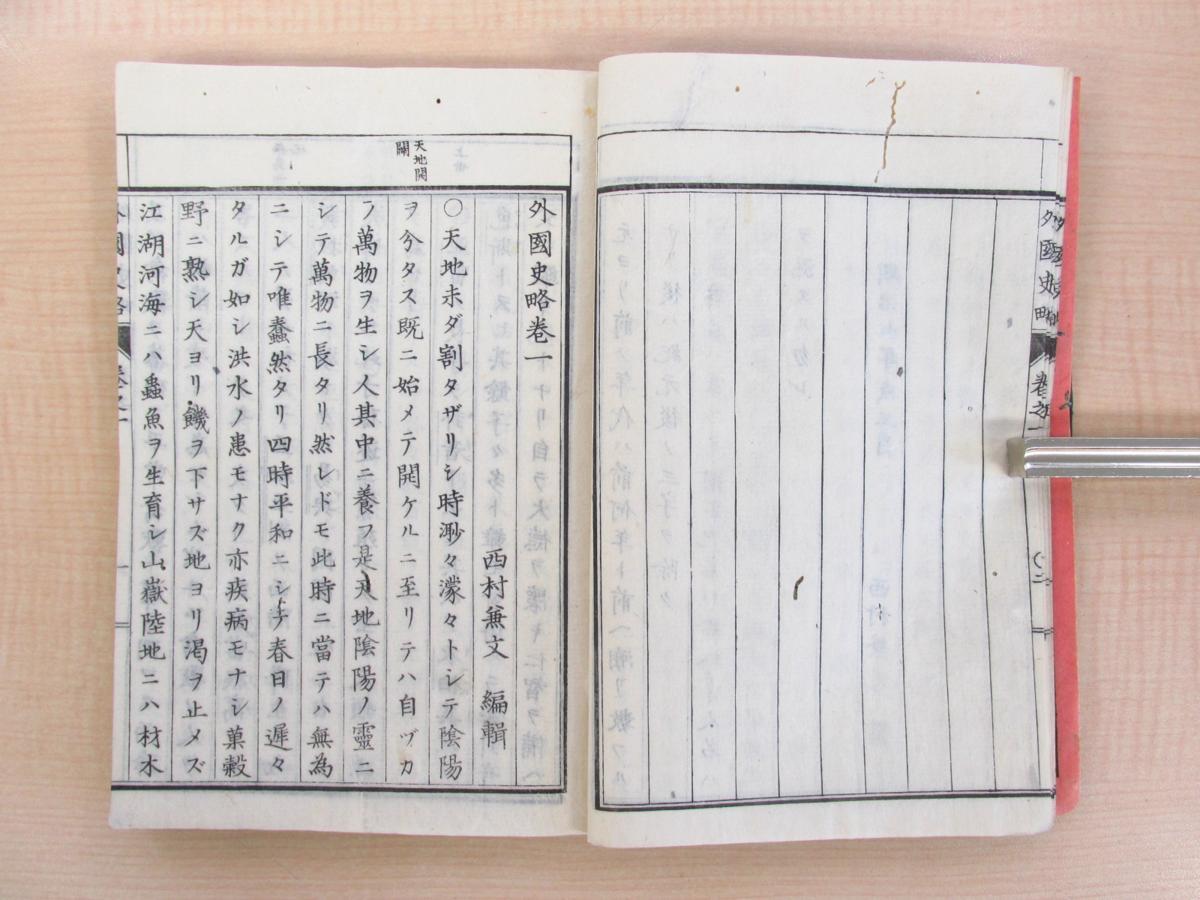 外國史略
卷之一
天地開
闢
外國史略卷一
西村兼文 編輯
〇天地未ダ割タザリシ時渺々濛々トシテ陰陽
ヲ分タス既ニ始メテ開ケルニ至リテハ自ヅカ
ラ萬物ヲ生シ人其中ニ養フ是天地陰陽ノ靈ニ
シテ萬物ニ長タリ然レドモ此時ニ當テハ無為
ニシテ唯蠢然タリ四時平和ニシテ春日ノ遲々
タルガ如シ洪水ノ患モナク亦疾病モナシ菓穀
野ニ熟シ天ヨリ鐖ヲ下サズ地ヨリ渇ヲ止メズ
江湖河海ニハ蟲魚ヲ生育シ山嶽陸地ニハ材木